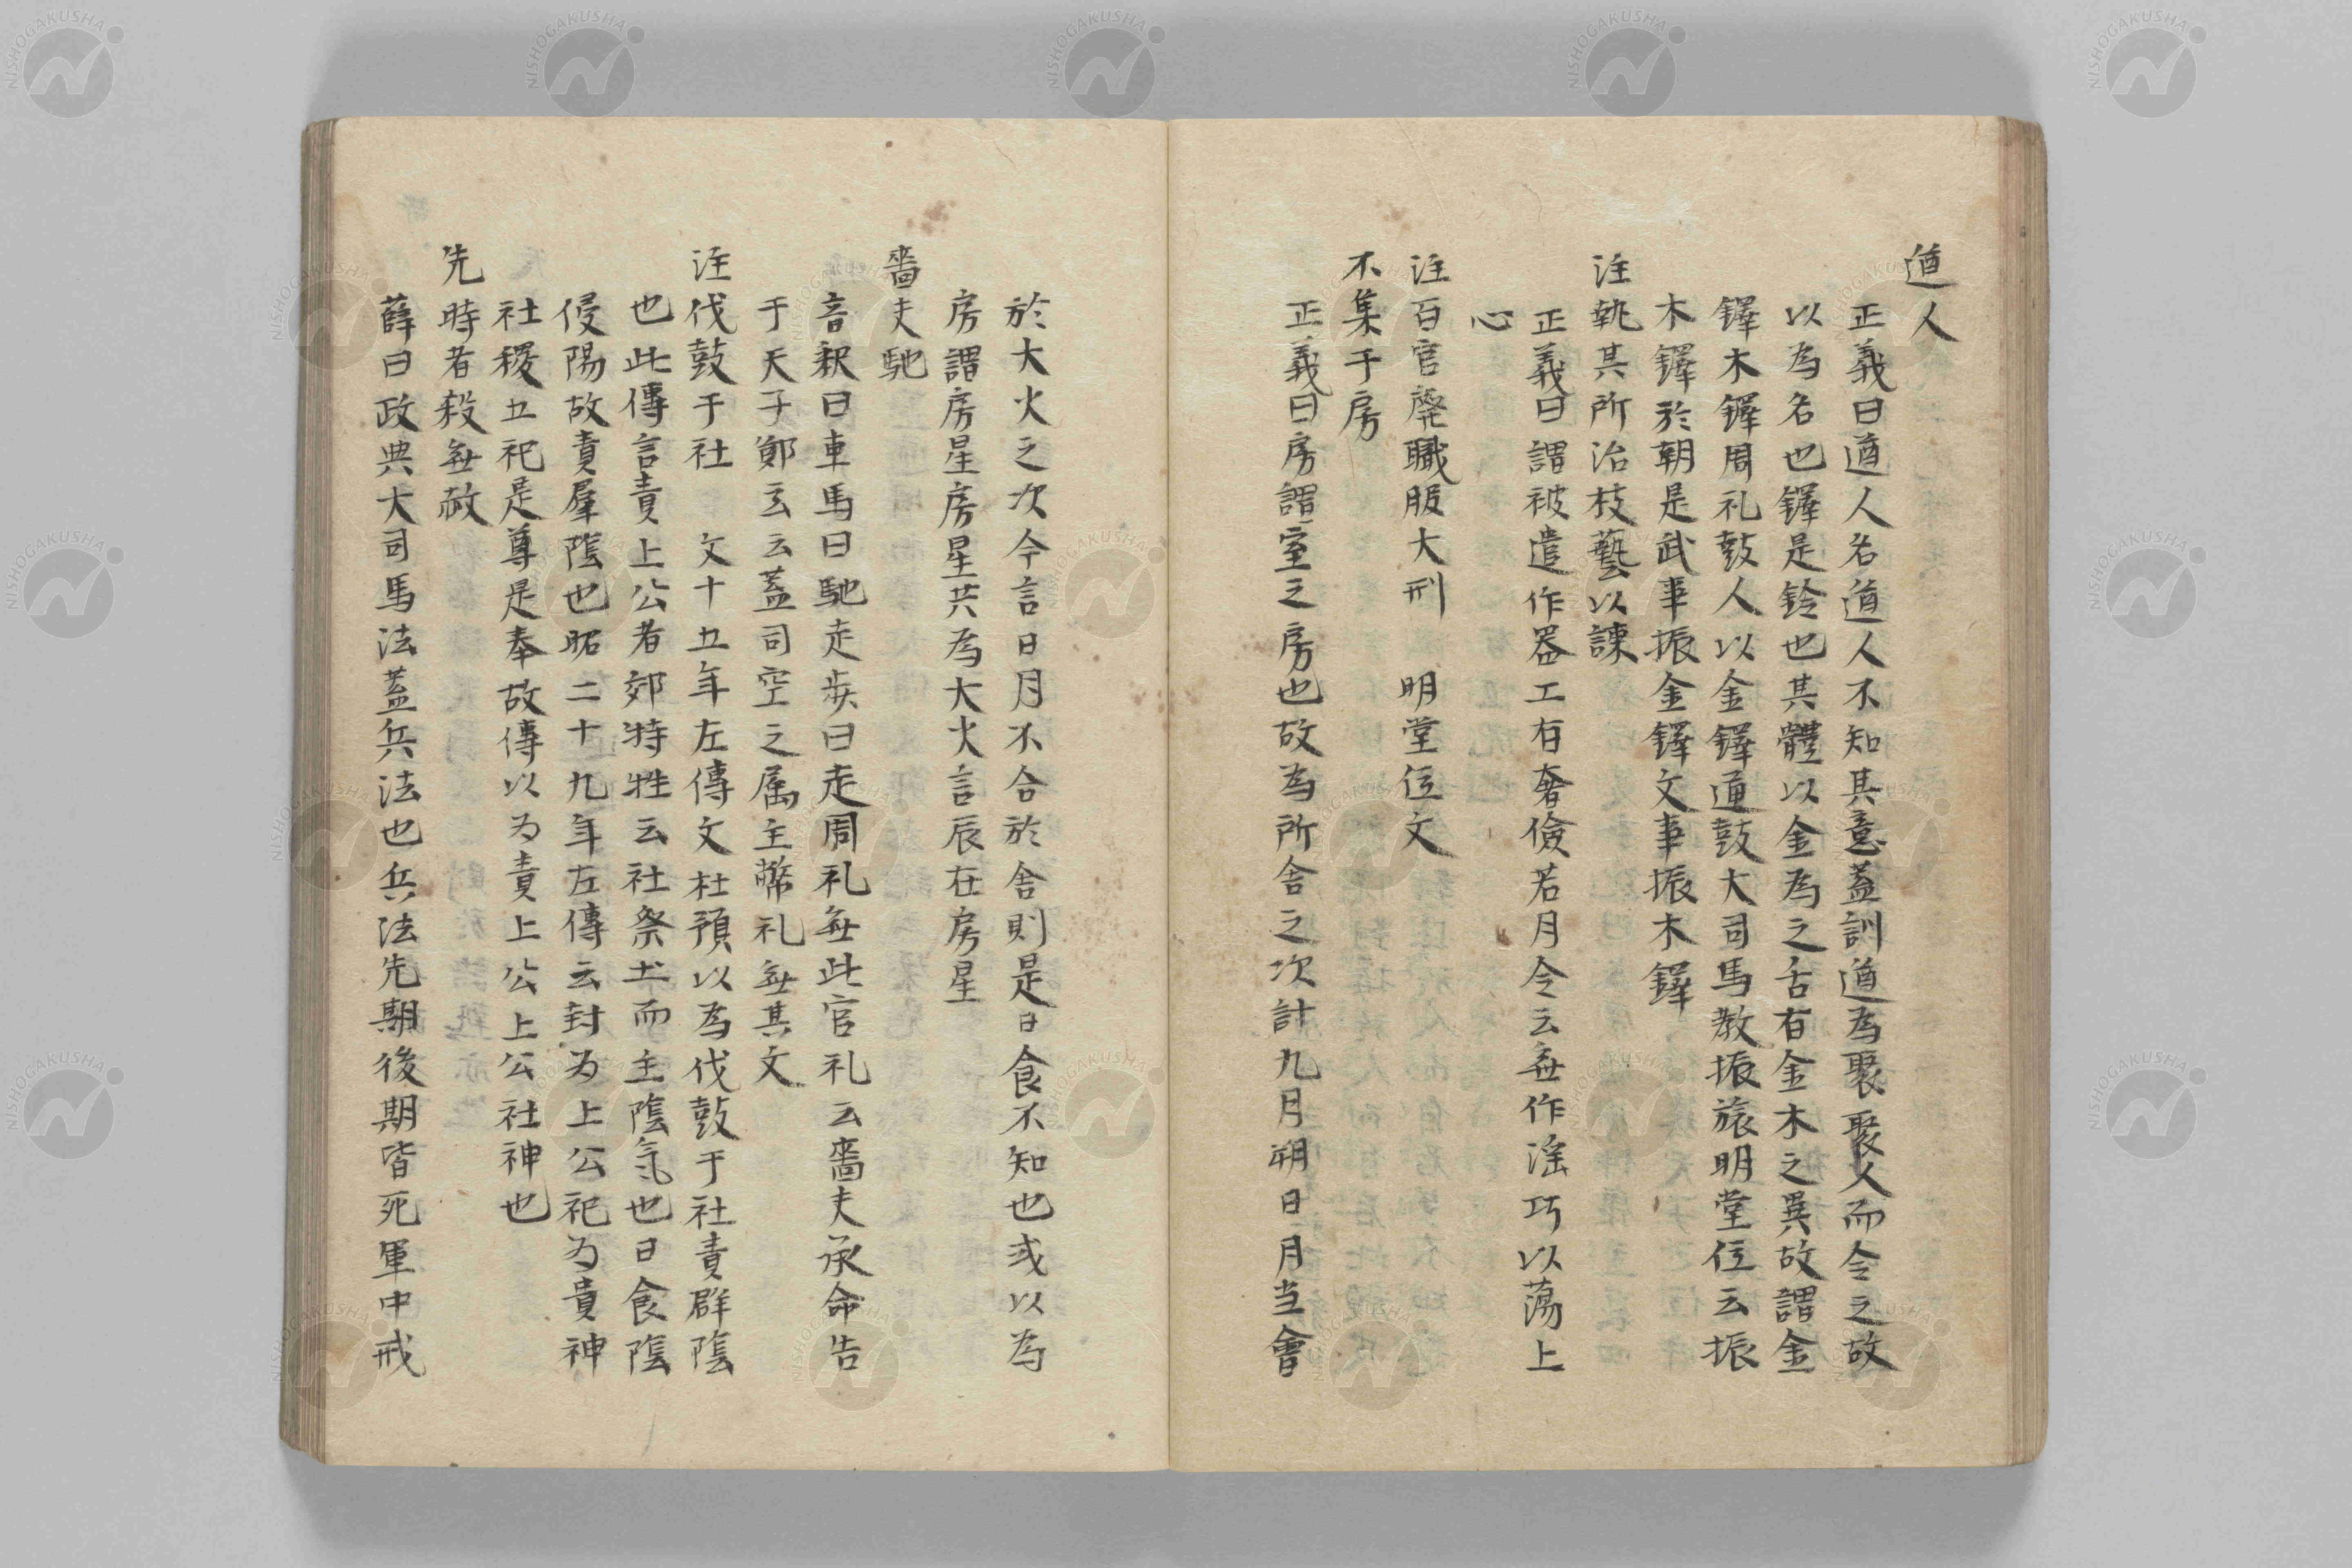 遒人
正義曰遒人名遒人不知其意蓋訓遒為聚聚人而令之故
以為名也鐸是鈴也其體以金為之舌有金木之異故謂金
鐸木鐸周礼鼓人以金鐸通鼓大司馬教振旅明堂位云振
木鐸於朝是武事振金鐸文事振木鐸
注執其所治技藝以諫
正義曰謂被遣作器工有奢儉若月令云無作滛巧以蕩上
心
注百官廃職服大刑 明堂位文
不集于房
正義曰房謂室之房也故為所舍之次計九月朔日月当會
於大火之次今言日月不合於舎則是日食不知也或以為
房謂房星房星共為大火言辰在房星
嗇夫馳
音釈曰車馬曰馳走步曰走周礼無此官礼云嗇夫承命告
于天子鄭云云蓋司空之属主幣礼無其文
注伐鼓于社 文十五年左傳文杜預以為伐鼓于社責群陰
也此傳言責上公者郊特牲云社祭土而主陰気也日食陰
侵陽故責羣陰也昭二十九年左傳云封为上公祀为貴神
社稷五祀是尊是奉故傳以为責上公上公社神也
先時者殺無赦
薛曰政典大司馬法蓋兵法也兵法先期後期皆死軍中戒
NISHOGAKUSHA